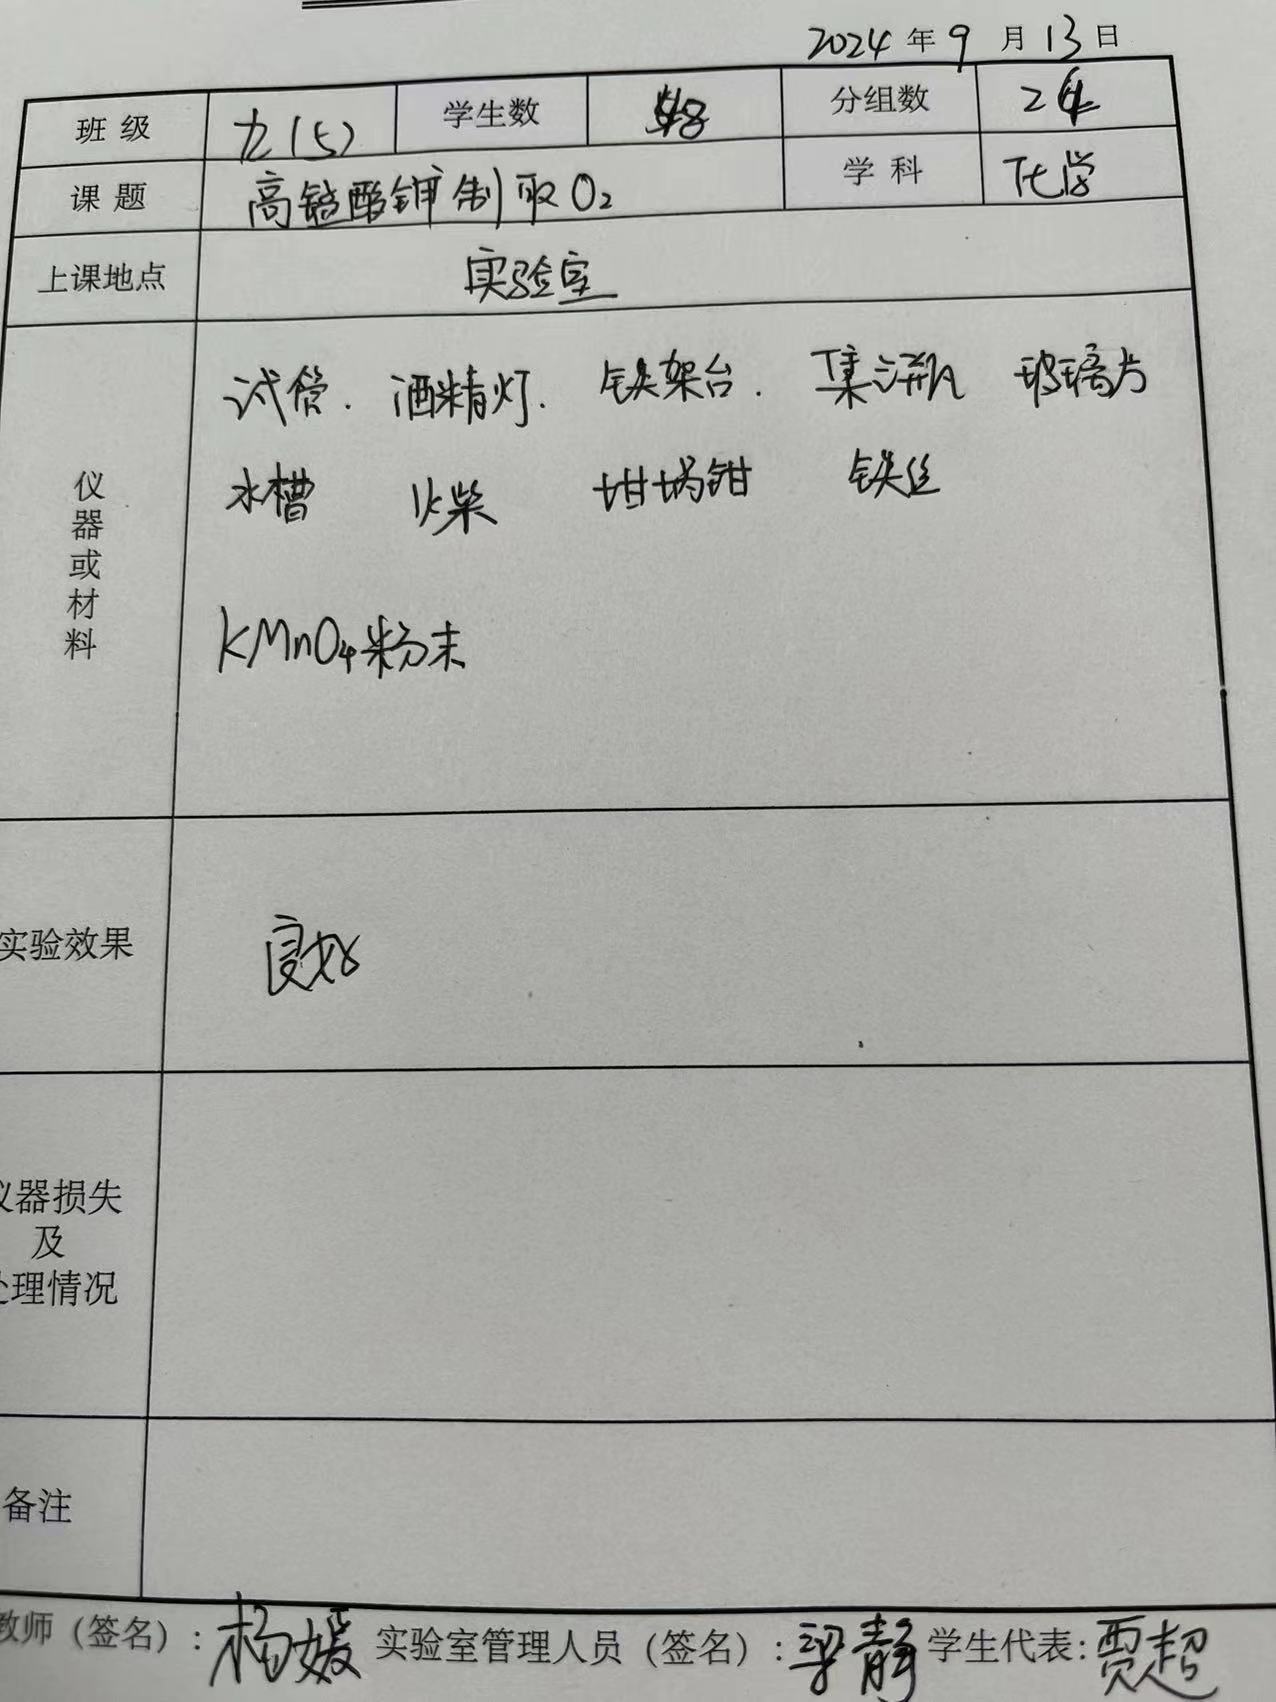 2024 年 9 月 13 日
班 级 九(5) 学生数 48 分组数 24
课 题 高锰酸钾制取O₂ 学 科 化学
上课地点 实验室
仪器或材料
试管. 酒精灯. 铁架台. 集气瓶 玻璃片
水槽 火柴 坩埚钳 铁丝
KMnO₄粉末
实验效果 良好
仪器损失
及
处理情况
备注
教师（签名）: 杨媛 实验室管理人员（签名）: 梁静 学生代表: 贾超